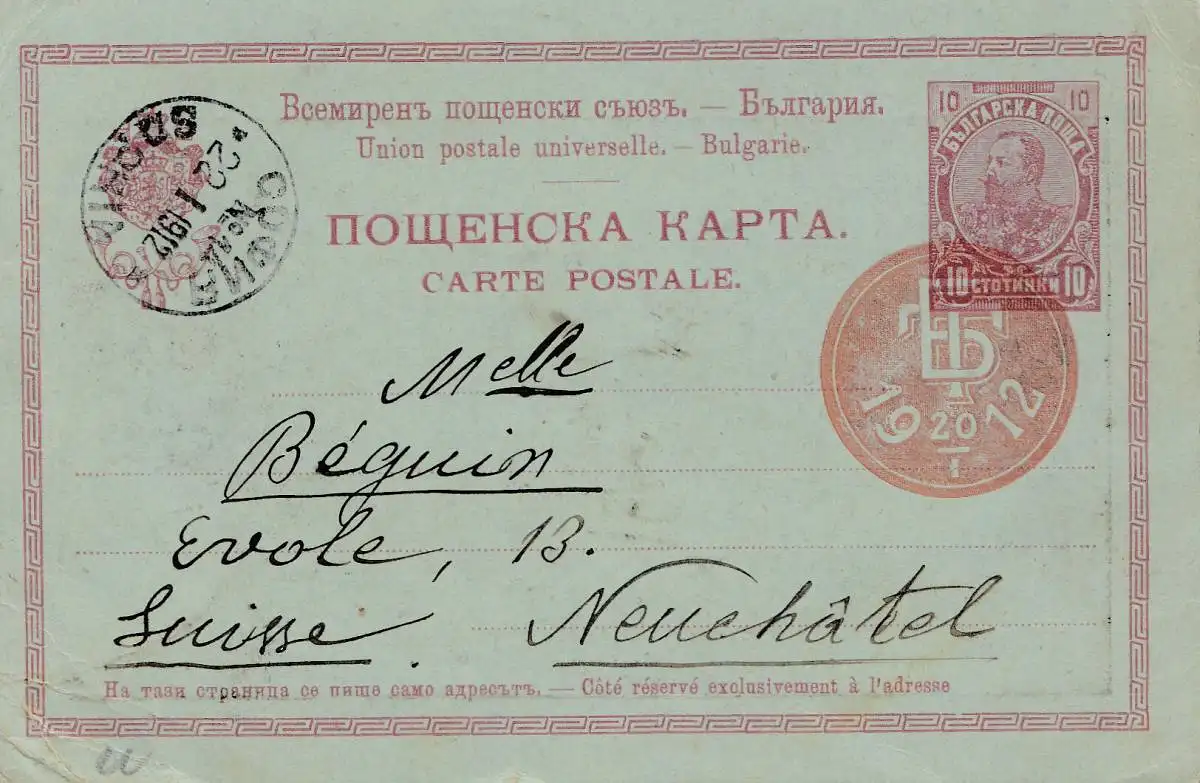 Всемиренъ пощенски съюзъ. — България.
Union postale universelle. — Bulgarie.
ПОЩЕНСКА КАРТА.
CARTE POSTALE.
10 10
БЪЛГАРСКА ПОЩА
10 СТОТИНКИ 10
СОФИЯ
22 I 1912
SOPHIA
БТ
19 20 12
I
Melle
Béguin
Evole, 13.
Suisse. Neuchâtel
На тази страница се пише само адресътъ. — Côté réservé exclusivement à l'adresse